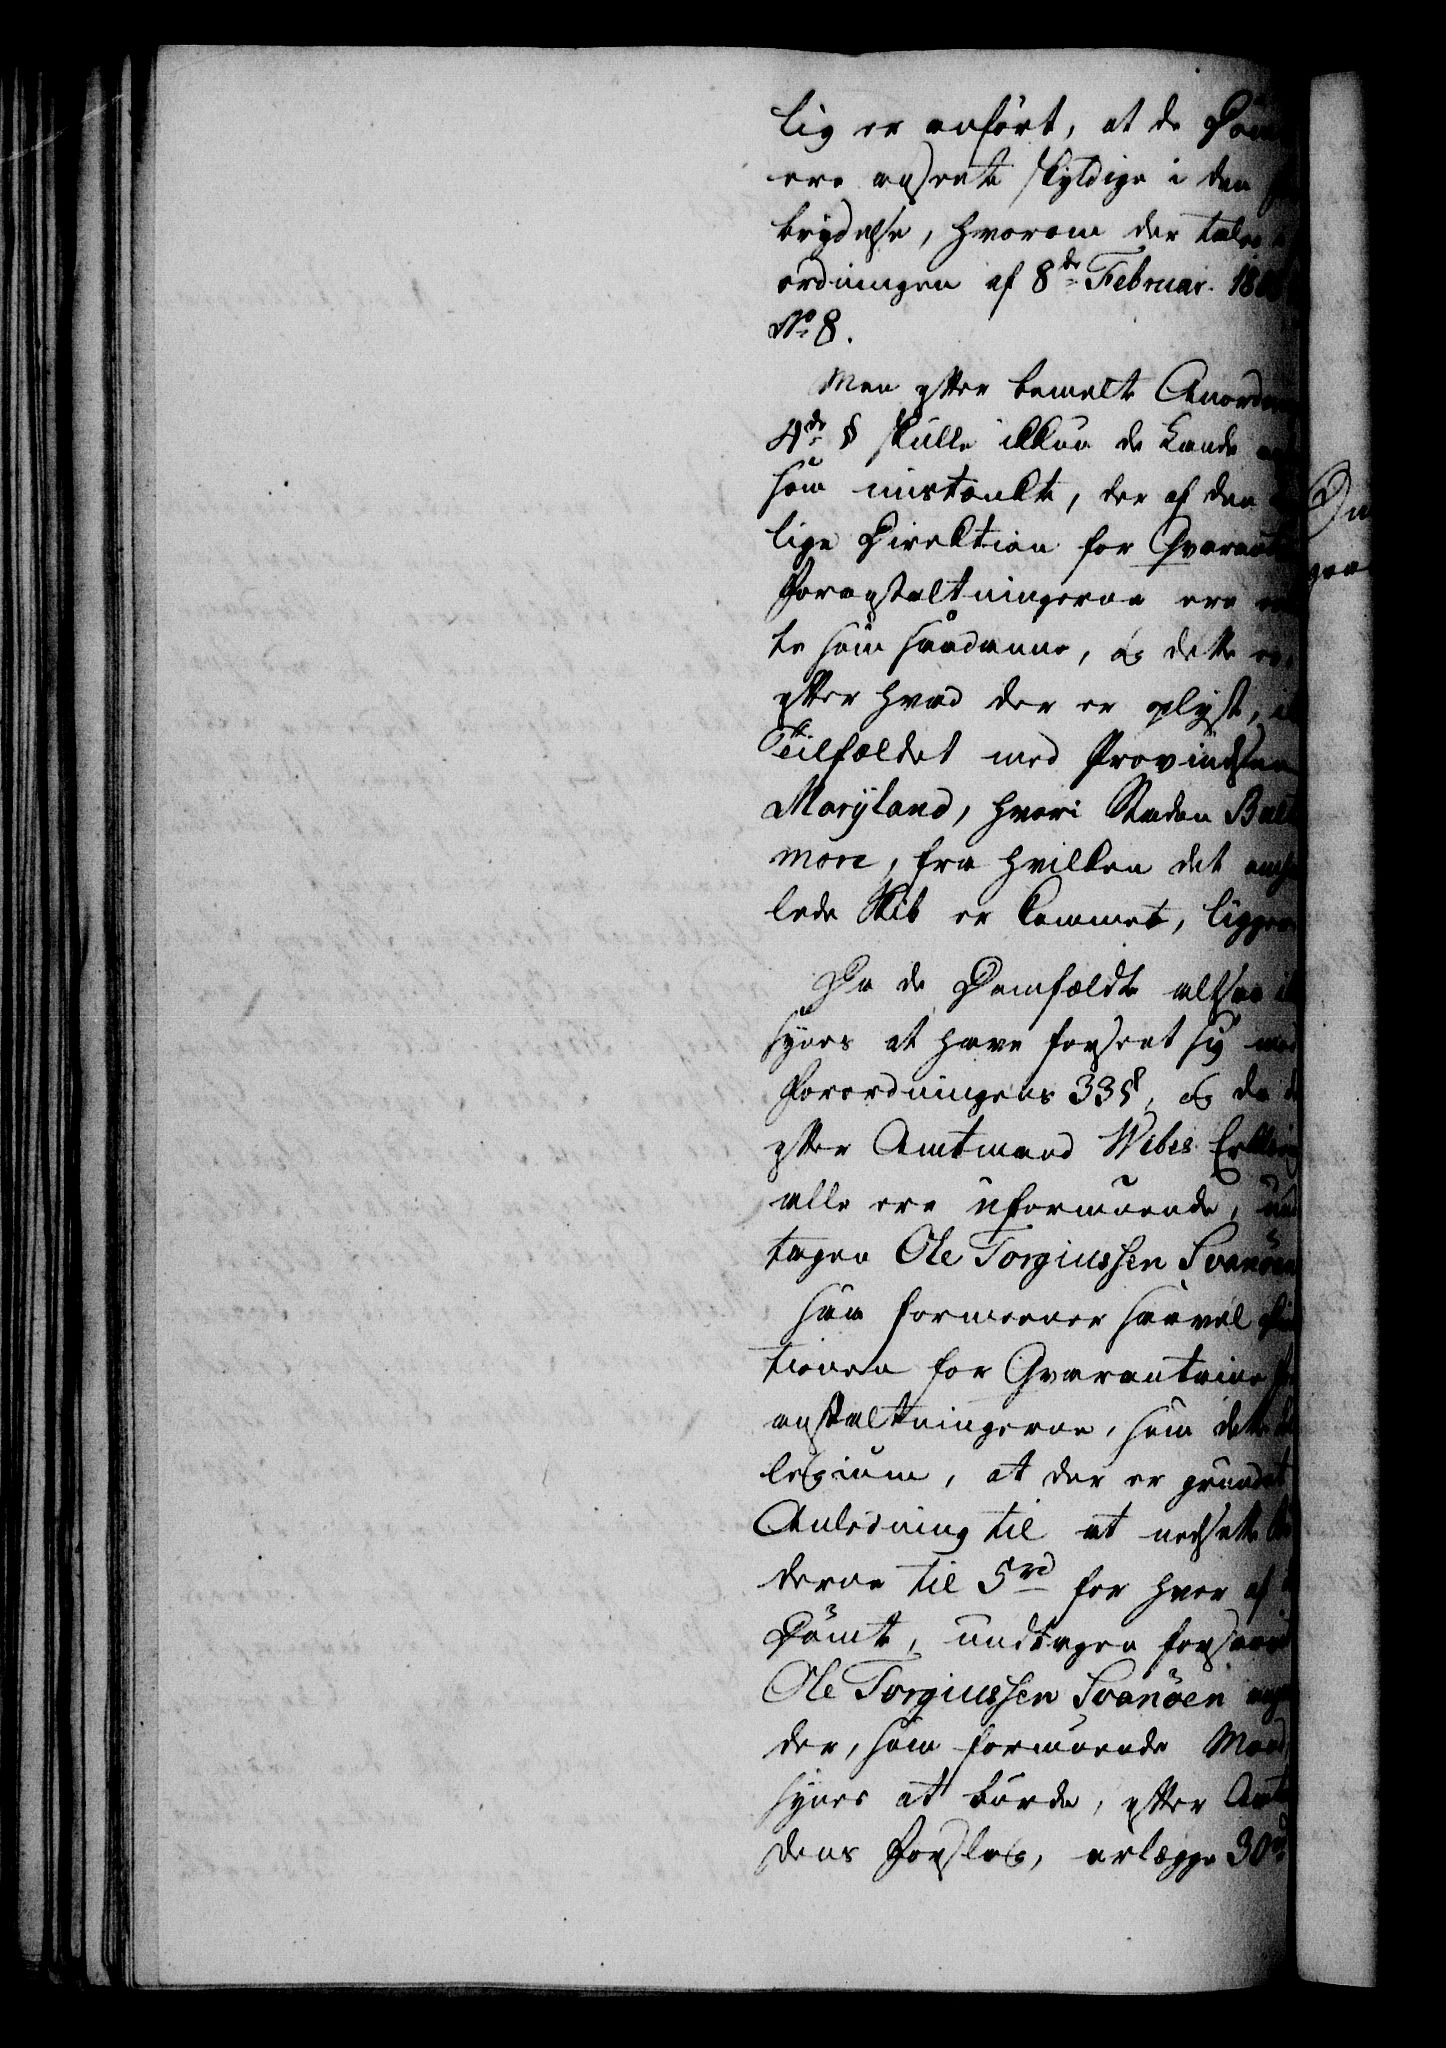 lig er anført, at de Døm
ere anseete skyldige i den
brydelse, hvorom der tales
ordningen af 8de Februar. 180
No 8.
Men efter bemelte Anordn
4de § skulle ikkun de kunde
som mistænkte, der af den
lige Direktion for Qvarant
Foranstaltningerne ere
te som saadanne, og dette er
efter hvad der er oplyst, i
Tilfældet med Provindsen
Maryland, hvori Staden Balt
more, fra hvilken det omha
lede Skib er kommet, ligger
Da de Domfældte altsaa i
synes at have forseet sig mod
Forordningens 33§, og da d
efter Amtmand Wibes Erklær
alle ere uformuende, und
tagen Ole Torgiussen Svanöen
saa formeener saavel Di
tionen for Qvarantaine Fo
anstaltningerne, som dette
legium, at der er grundet
Anledning til at nedsætte B
derne til 5rd for hver af
Dömte, undtagen forsaavid
Ole Torgiussen Svanöen ang
der, som formuende Mand,
synes at burde, efter Amt
dens Forslag, erlægge 30rd